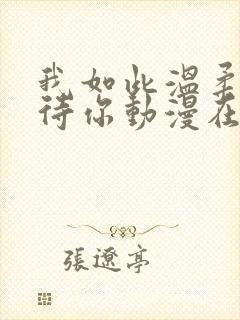 我如此溫柔
待你動漫在
張遼亭